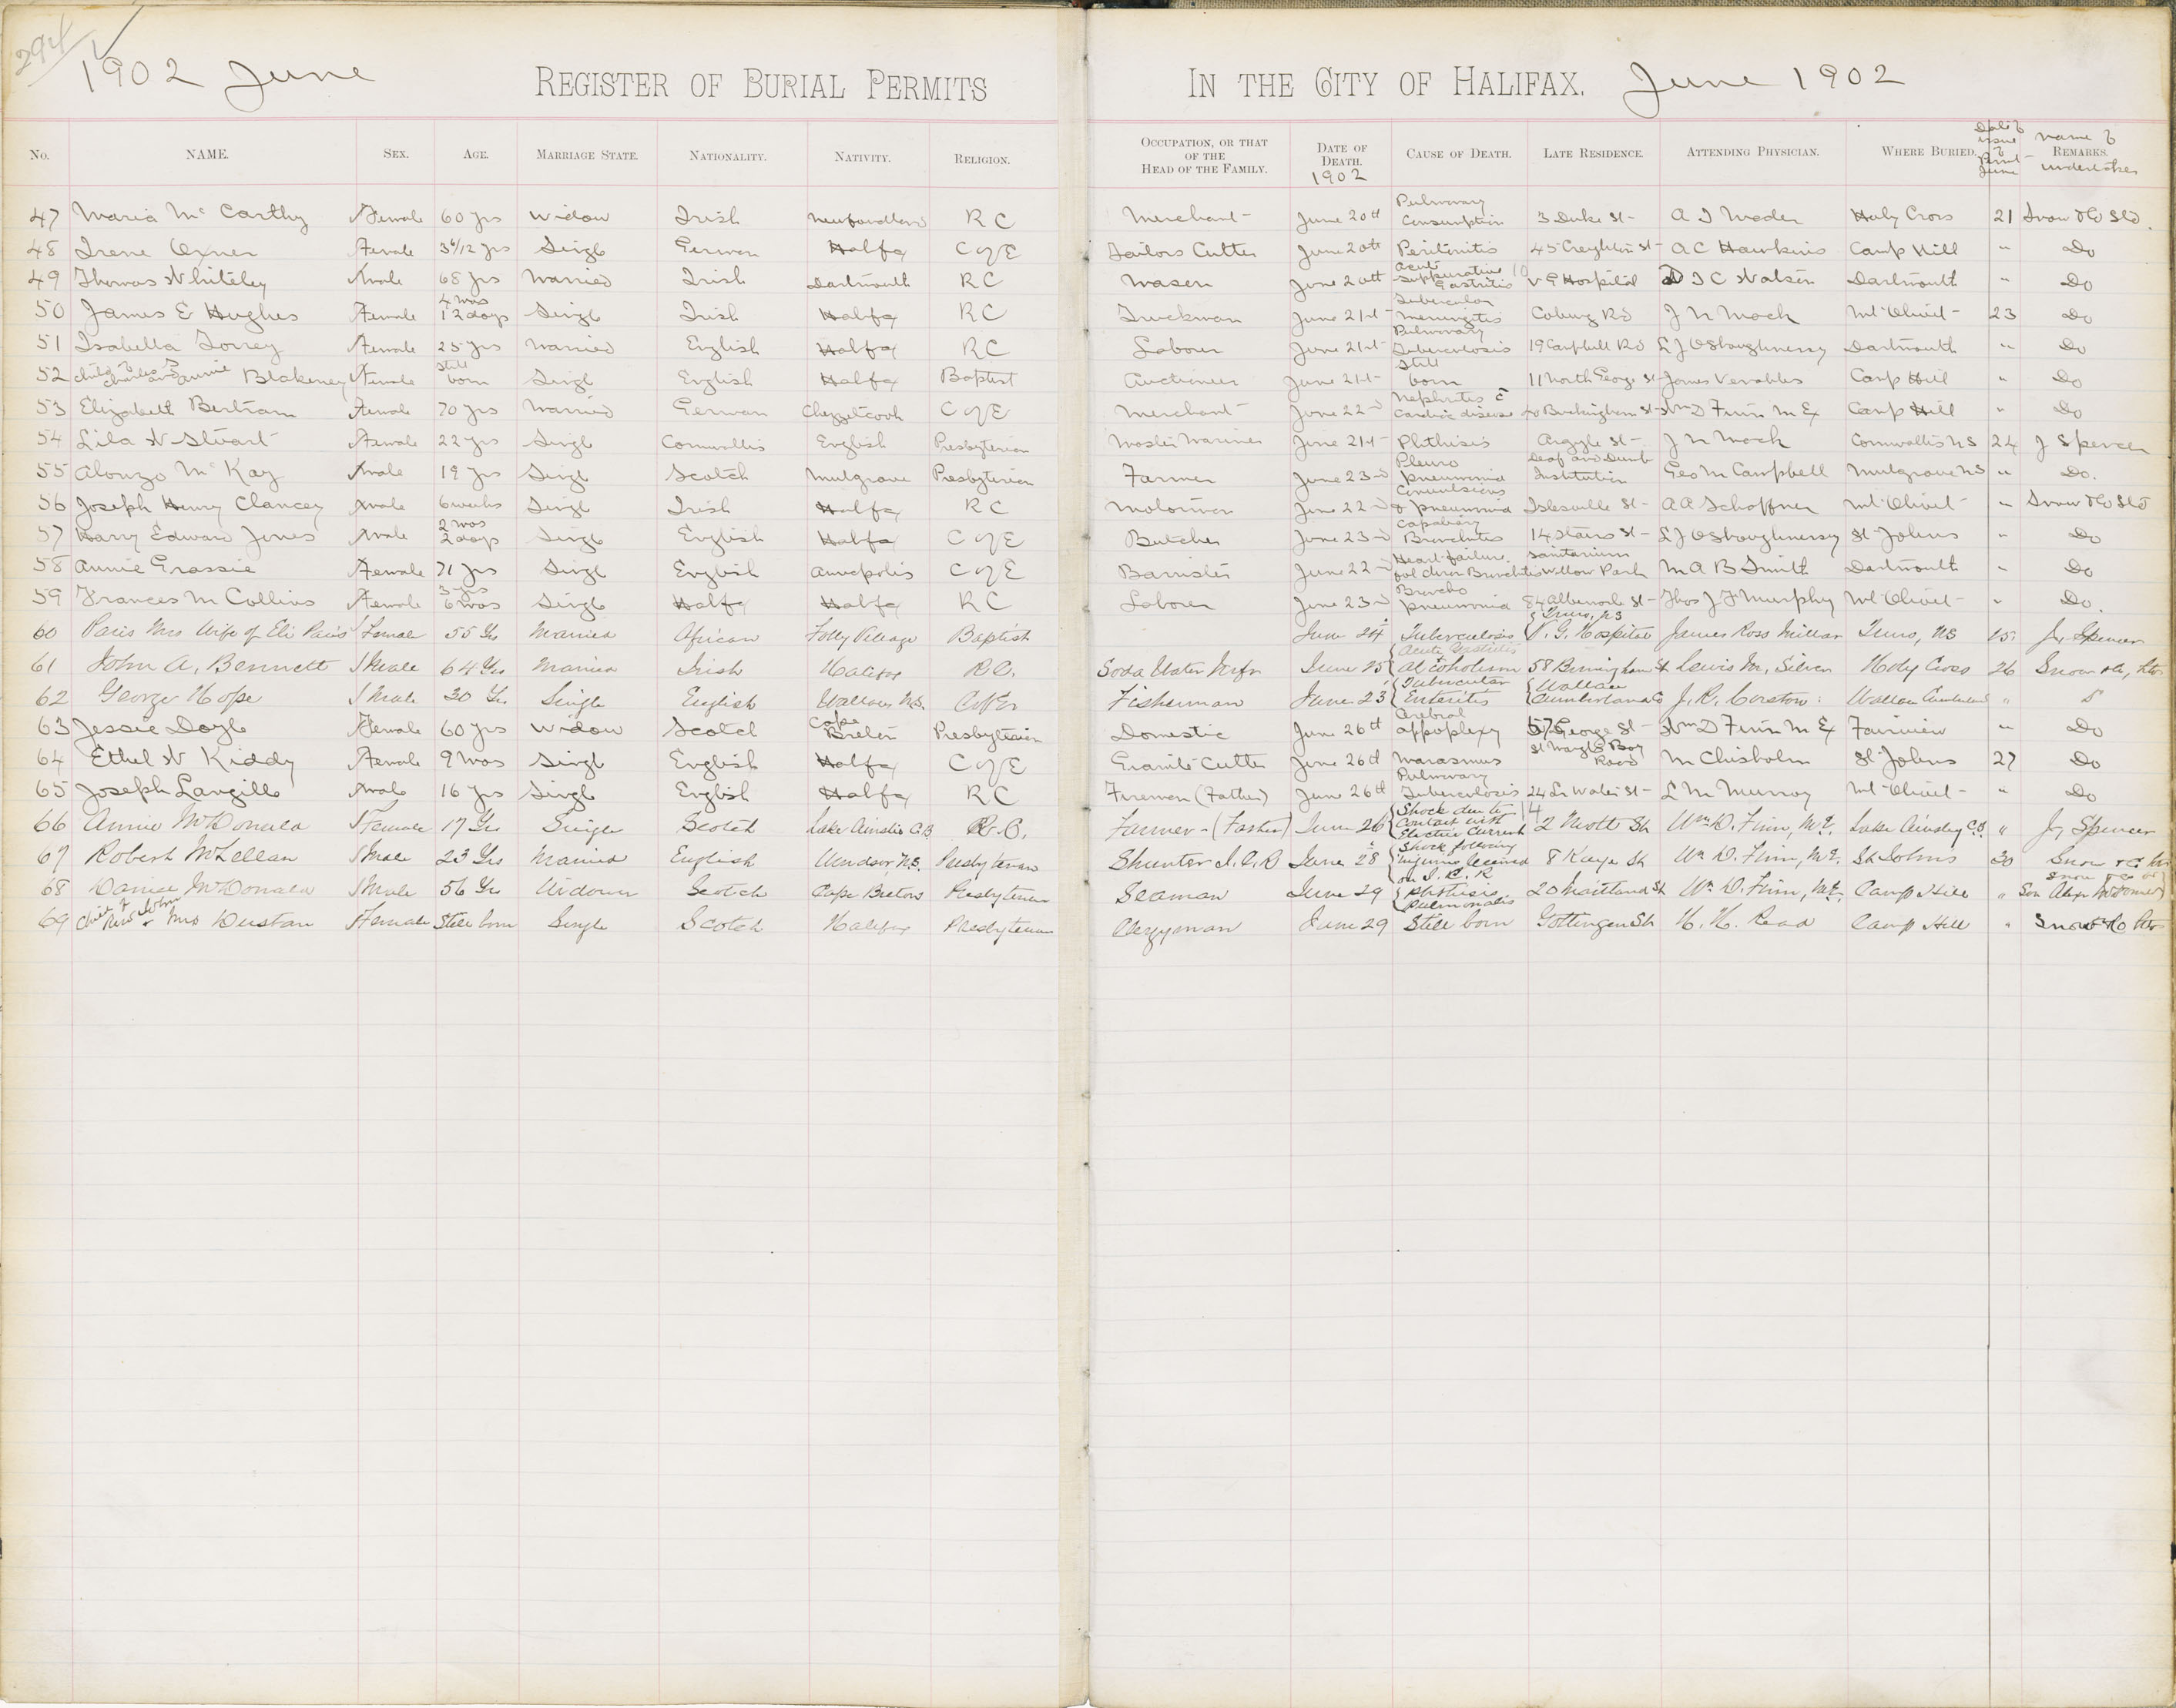 294
1902 June REGISTER OF BURIAL PERMITS IN THE CITY OF HALIFAX. June 1902
No. NAME. SEX. AGE. MARRIAGE STATE. NATIONALITY. NATIVITY. RELIGION. OCCUPATION, OR THAT OF THE HEAD OF THE FAMILY. DATE OF DEATH. 1902 CAUSE OF DEATH. LATE RESIDENCE. ATTENDING PHYSICIAN. WHERE BURIED. Date of issue of Permit June Name of REMARKS. undertaker
47 Maria Mc Carthy Female 60 yrs Widow Irish Newfoundland R C Merchant June 20th Pulmonary Consumption 3 Duke St A I Mader Holy Cross 21 Snow & Co Ltd.
48 Irene Oxner Female 3 6/12 yrs Singl German Halfx C of E Tailors Cutter June 20th Peritonitis 45 Creighton St A C Hawkins Camp Hill " Do
49 Thomas Whiteley Male 68 yrs Married Irish Dartmouth R C Mason June 20th Acute Suppurative Gastritis 10 V G Hospital D I C Watson Dartmouth " Do
50 James E Hughes Female 4 mos 12 days Singl Irish Halfx R C Truckman June 21st Tubercular Meningitis Coburg Rd J N Mack Mt Olivet 23 Do
51 Isabella Torrey Female 25 yrs Married English Halfx R C Labourer June 21st Pulmonary Tuberculosis 19 Campbell Rd E J OShaughnessy Dartmouth " Do
52 Child of Charles and Annie Blakeney Female Still born Singl English Halfx Baptist Auctioneer June 21st Still born 11 North George St James Venables Camp Hill " Do
53 Elizabeth Bertram Female 70 yrs Married German Chezzetcook C of E Merchant June 22nd Nephritis c Cardiac disease 40 Buckingham St Wm D Finn M Ex Camp Hill " Do
54 Lila W Stuart Female 22 yrs Singl Cornwallis English Presbyterian Master Mariner June 21st Phthisis Argyle St J N Mack Cornwallis NS 24 J Spencer
55 Alonzo Mc Kay Male 19 yrs Singl Scotch Mulgrave Presbyterian Farmer June 23rd Pleuro pneumonia Deaf and Dumb Institution Geo M Campbell Mulgrave NS " Do.
56 Joseph Henry Clancey Male 6 weeks Singl Irish Halfx R C Motorman June 22nd Convulsions & pneumonia Islesville St A A Schaffner Mt Olivet " Snow & Co Ltd
57 Harry Edward Jones Male 2 mos 2 days Singl English Halfx C of E Butcher June 23rd Capalary Bronchitis 14 Stairs St E J OShaughnessy St Johns " Do
58 Annie Grassie Female 71 yrs Singl English Annapolis C of E Barrister June 22nd Heart failure fol chron Bronchitis Sanitarium Willow Park M A B Smith Dartmouth " Do
59 Frances M Collins Female 3 yrs 6 mos Singl Halfx Halfx R C Laborer June 23rd Broncho pneumonia 84 Albermarle St Thos J F Murphy Mt Olivet " Do.
60 Paris Mrs Wife of Eli Paris Female 55 Yrs Married African Folly Village Baptist June 24 Tuberculosis Truro, NS V. G. Hospital James Ross Millar Truro, NS 25 J. Spencer
61 John A. Bennett Male 64 Yrs Married Irish Halifax R.C. Soda Water Mnfr June 25 Acute Gastritis Alcoholism 58 Birmingham St Lewis M. Silver Holy Cross 26 Snow & Co, Ltd
62 George Hope Male 30 Yrs Single English Wallace N.S. C of E Fisherman June 23 Tubercular Enteritis Wallace Cumberland Co J. R. Corston Wallace Cumberland "
63 Jessie Doyle Female 60 yrs Widow Scotch Cape Breton Presbyterian Domestic June 26th Cerebral appoplexy 57 George St Wm D Finn M Ex Fairview " Do
64 Ethel W Kiddy Female 9 mos Singl English Halfx C of E Granite Cutter June 26th Marasmus St Margts Bay Road M Chisholm St Johns 27 Do
65 Joseph Langille Male 16 yrs Singl English Halfx R C Fireman (Father) June 26th Pulmonary Tuberculosis 24 Lr Water St L M Murray Mt Olivet " Do
66 Annie McDonald Female 17 Yrs Single Scotch Lake Ainslie C.B. R.C. Farmer - (Father) June 26 Shock due to Contact with Electric Current 14 2 Mott St Wm D. Finn, M.E. Lake Ainsley C.B. " J. Spencer
67 Robert McLellan Male 23 Yrs Married English Windsor N.S. Presbyterian Shunter I.C.R June 28 Shock following injuries received on I. C. R 8 Kaye St Wm D. Finn, M.E. St Johns 30 Snow & Co Ltd
68 Daniel McDonald Male 56 Yrs Widower Scotch Cape Breton Presbyterian Seaman June 29 Phthisis Pulmonalis 20 Maitland St Wm D. Finn, M.E. Camp Hill " Snow & Co or Son Alex McDonald
69 Child of Rev John & Mrs Dustan Female Still born Single Scotch Halifax Presbyterian Clergyman June 29 Still born Gottingen St H. H. Read Camp Hill " Snow & Co Ltd